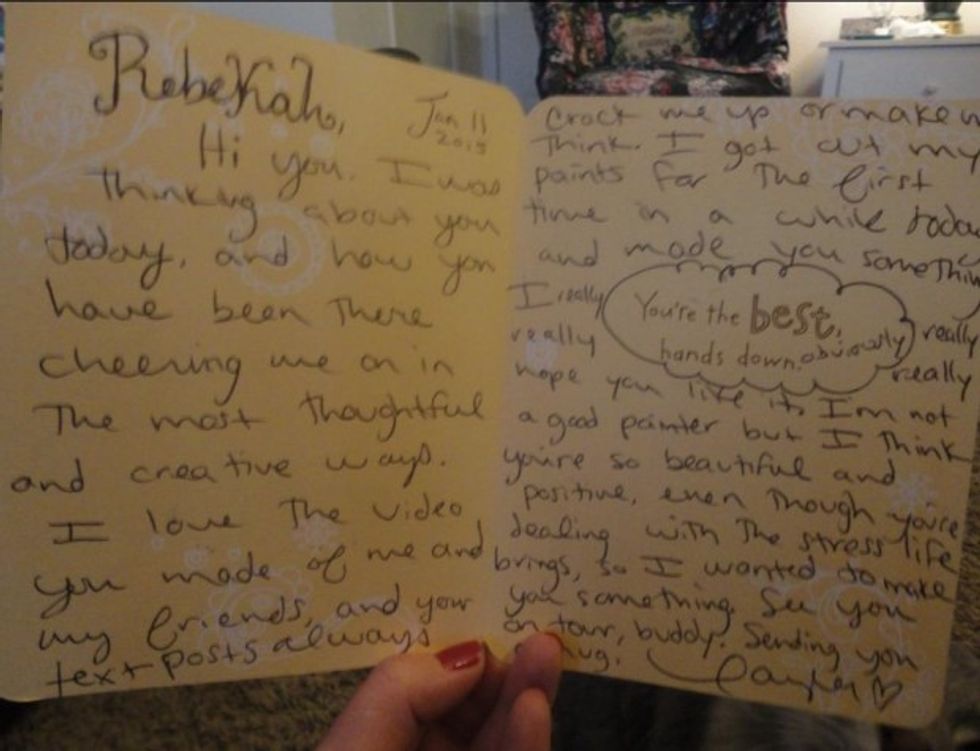 Rebekah,
Jan 11
2015
Hi you. I was
thinking about you
today, and how you
have been there
cheering me on in
The most thoughtful
and creative ways.
I love The video
you made of me and
my friends, and your
text posts always
crack me up or make
Think. I got out my
paints for The first
time in a while today
and made you something
I really
You're the best,
really
really
hands down. obviously
really
hope you like it. I'm not
a good painter but I Think
you're so beautiful and
positive, even Though you're
dealing with The stress life
brings, so I wanted to make
you something. See you
on tour, buddy. Sending you
hug.